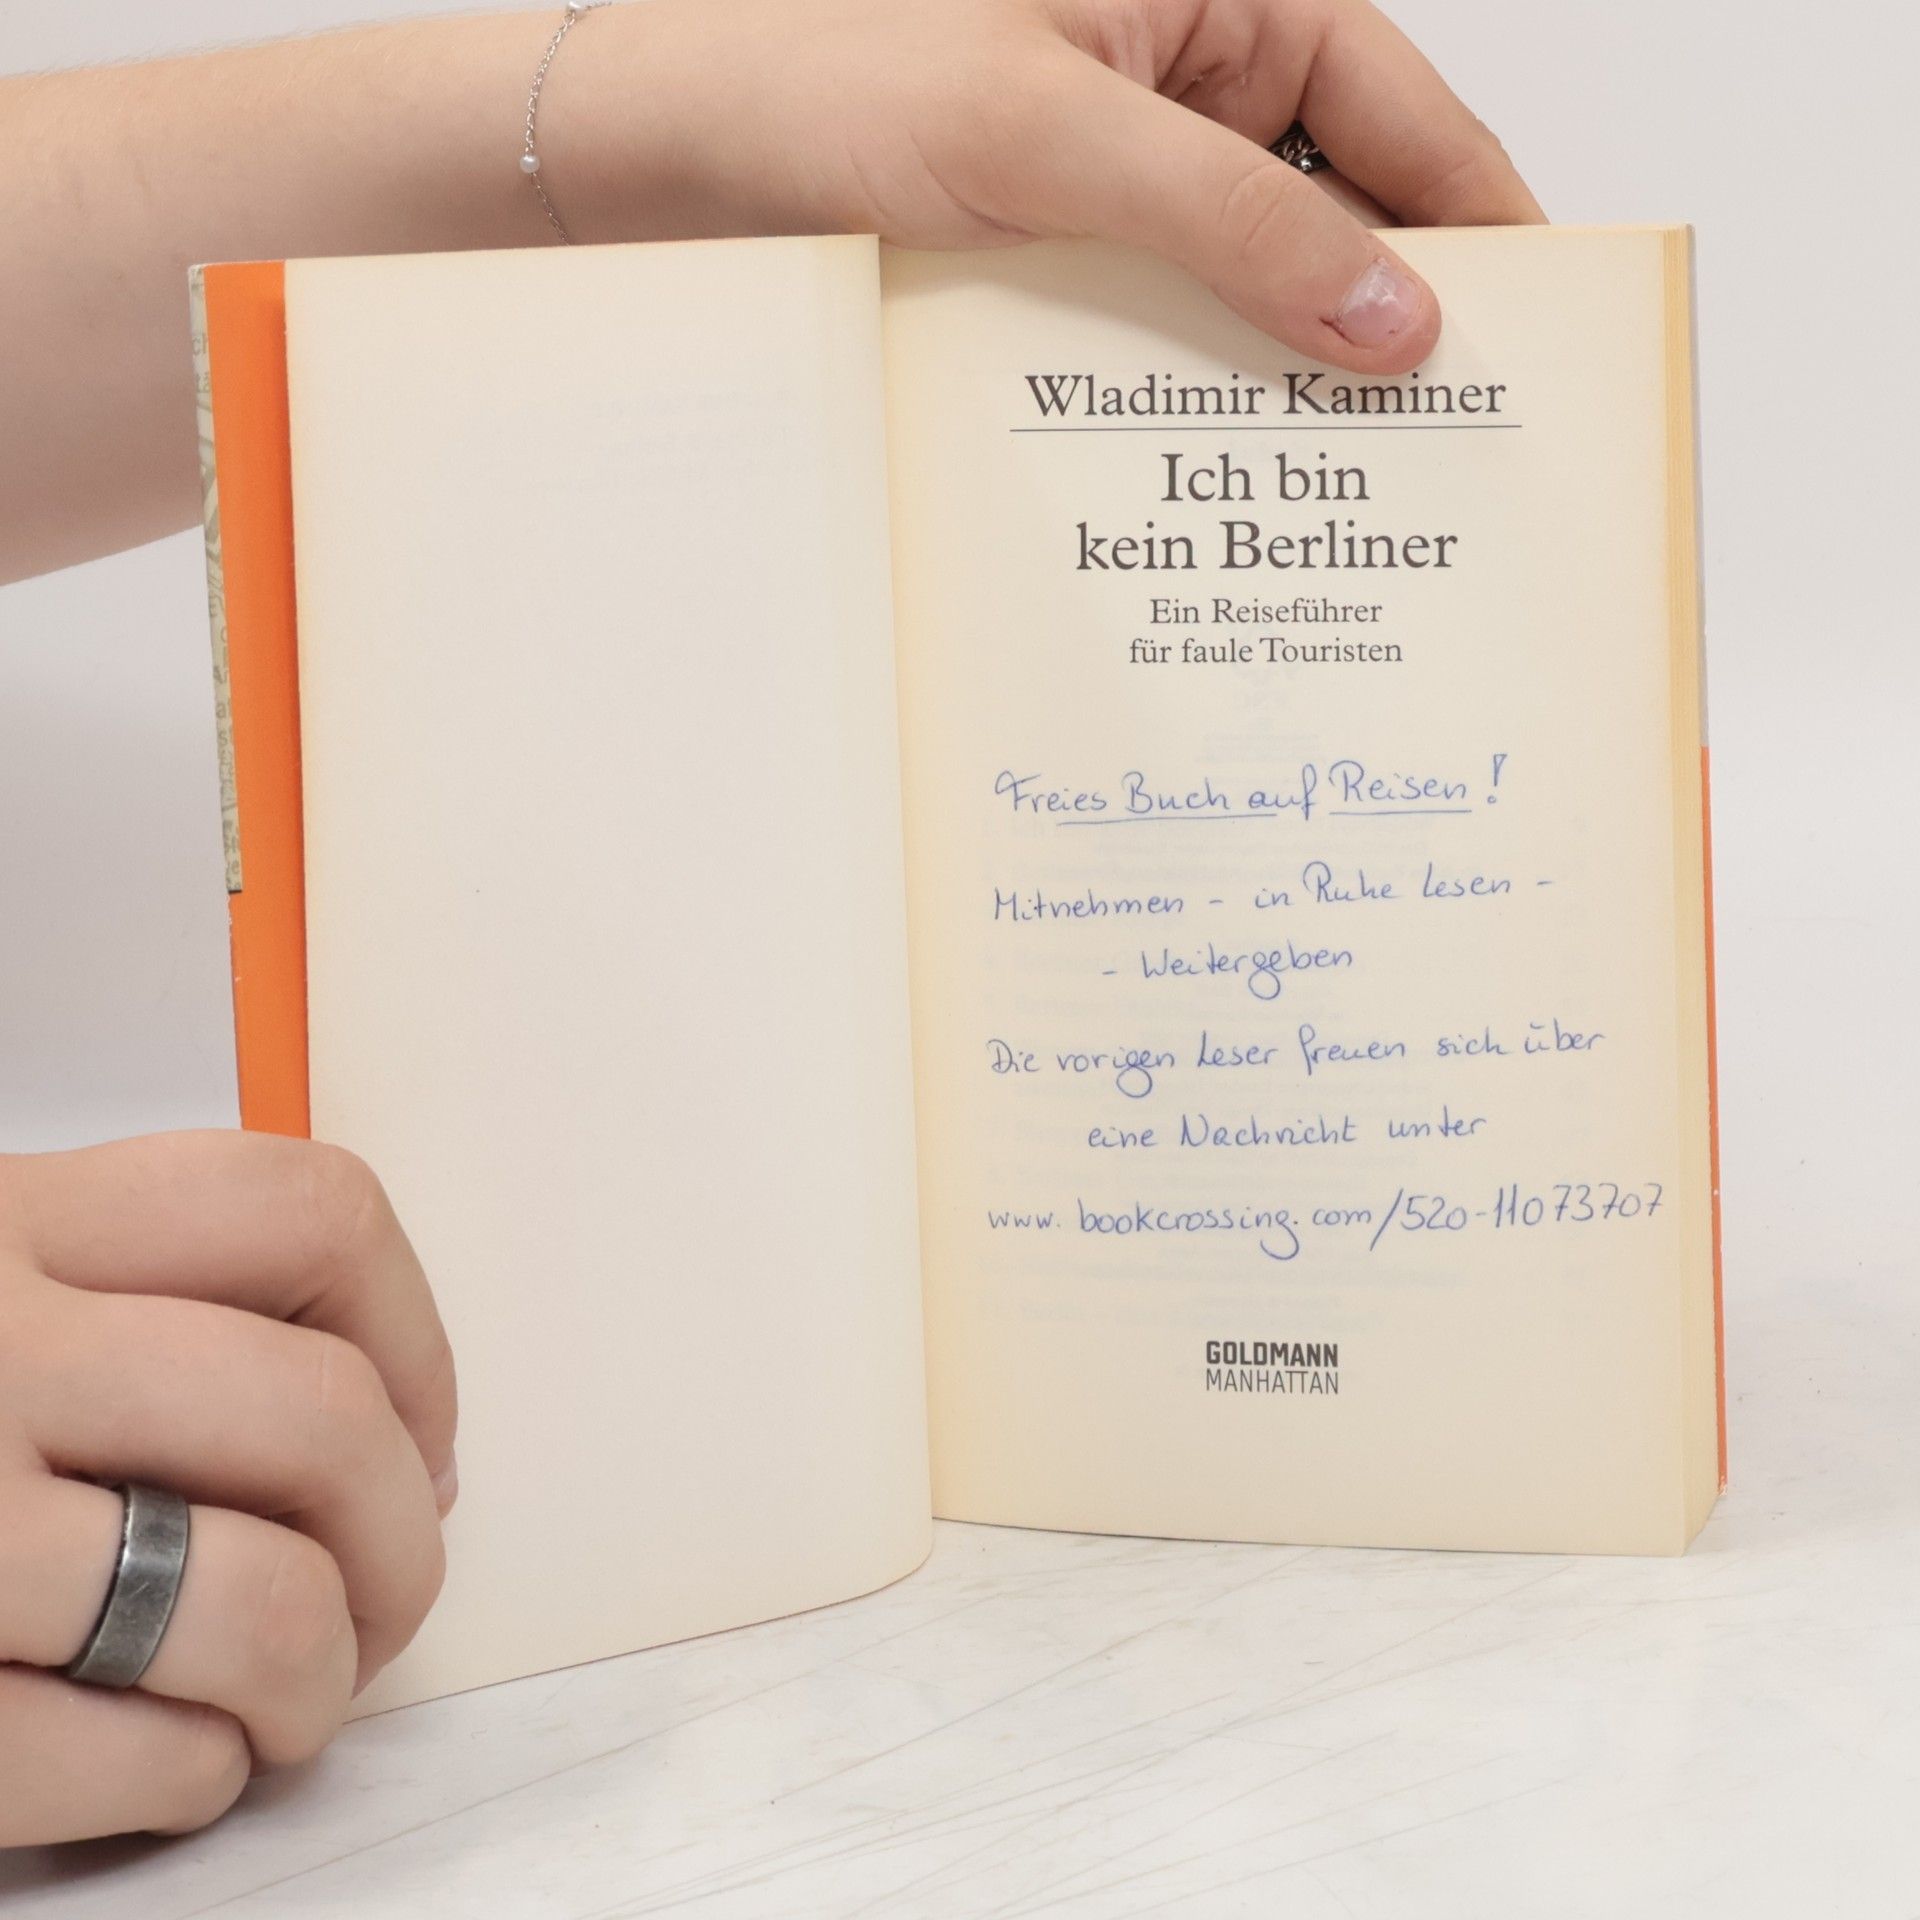 Wladimir Kaminer
Ich bin
kein Berliner
Ein Reiseführer
für faule Touristen
Freies Buch auf Reisen!
Mitnehmen - in Ruhe Lesen -
- Weitergeben
Die vorigen Leser freuen sich über
eine Nachricht unter
www.bookcrossing.com/520-11073707
GOLDMANN
MANHATTAN